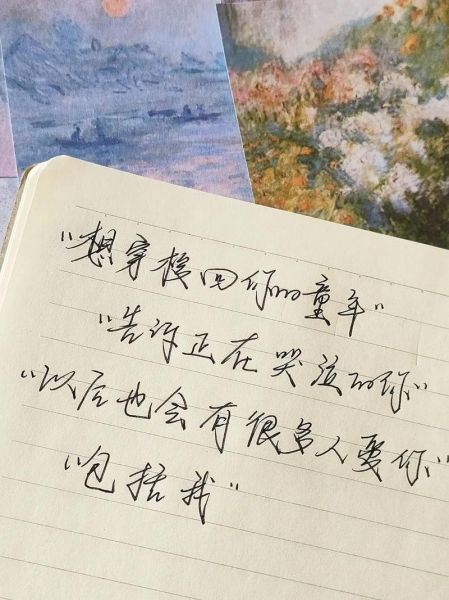 "想穿梭回你的童年"
"告诉正在哭泣的你"
"以后也会有很多人爱你"
"包括我"